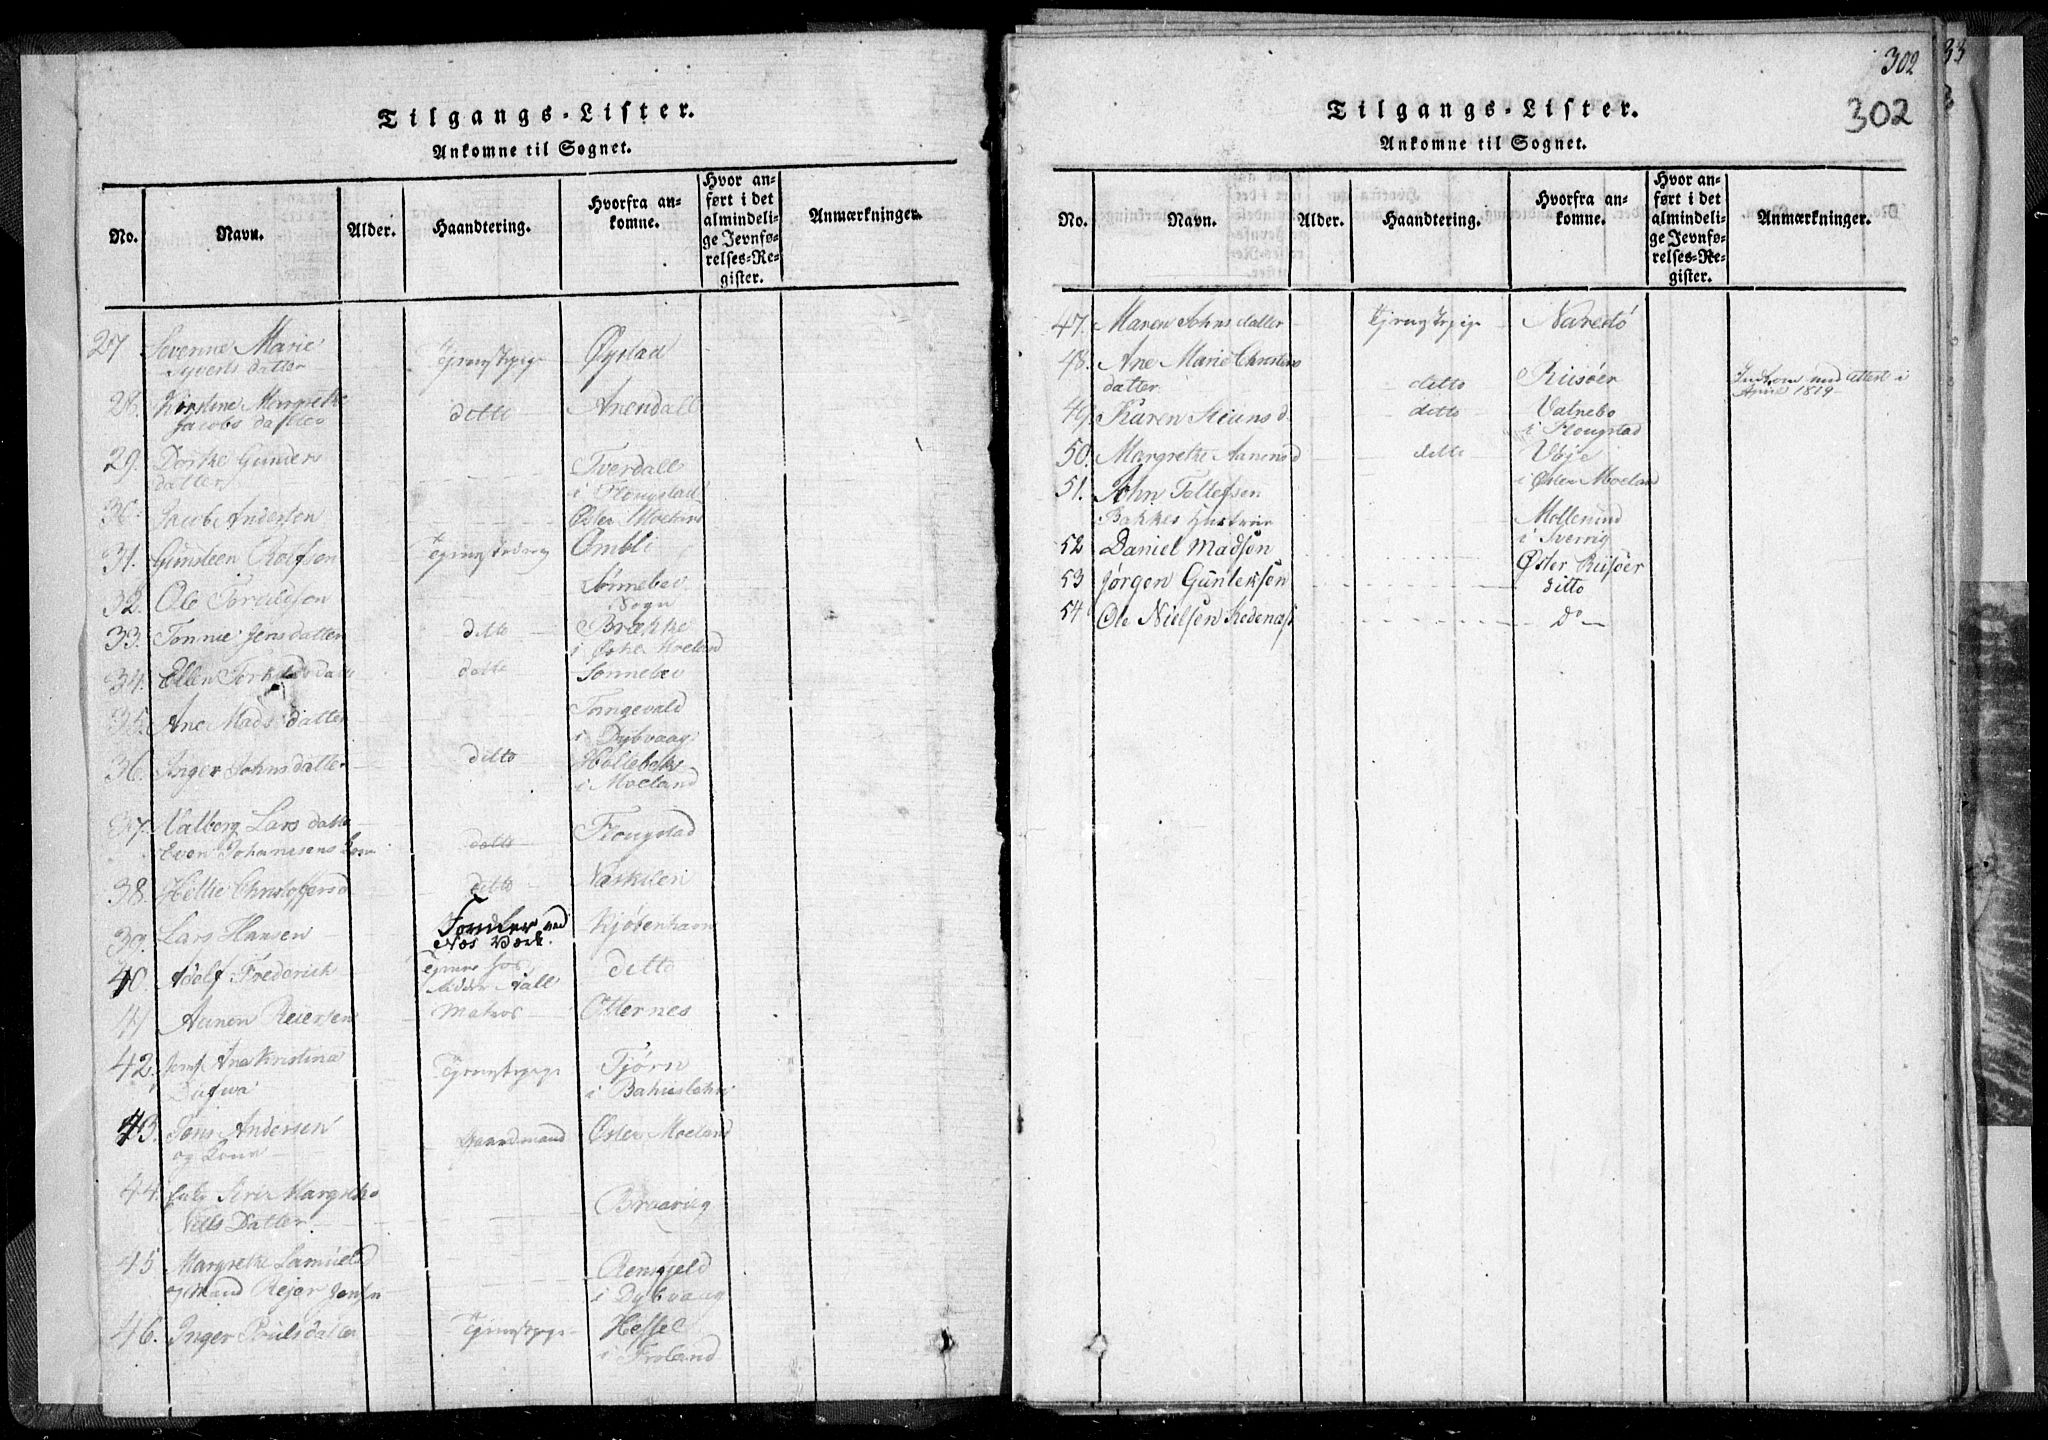 Tilgangs-Lister.
Ankomne til Sognet.
No. Navn. Alder. Haandtering. Hvorfra ankomne. Hvor anført i det almindelige Jevnførelses-Register. Anmærkninger.
27 Severine Marie Tjenestepige Øystad
Syverts datter
28. Kirstine Margrethe ditto Arendall
Jacobs datter
29. Dorthe Gunders Tverdall
datter i Flougstad
30. Jacob Andersen Øster Moeland
31. Gunsteen Rolfsen Tjenestedreng Ombli
32. Ole Toralfsen Sønneløv
Sogn
33. Tonnie Jens datter ditto Brække
i Øster Moeland
34. Ellen Torkilds datter ditto Sønneløv
35. Ane Mads datter Tangevald
i Dybvaag
36. Inger Johns datter ditto Holtebek
i Moeland
37. Valborg Lars datter ditto Flougstad
Even Johannesens Kone
38. Hellie Christophersd ditto Naskilen
39. Lars Hansen Formler ved Kjøbenhavn
Næs Værk.
40. Adolf Frederich Tjener hos ditto
Ridder Aall
41 Aanon Reiersen Matros Otternes
42. Jomf Ane Kristina Tjenestepige Tjørn
i Bahuslehn
43. Jens Andersen Gaardmand Øster Moeland
og Kone
44. Siri Margrethe
Nils Datter
45 Margrethe Samuelsd Rensfjeld
og Mand Rejer Jensen i Dybvaag
46. Inger Povels datter Tjenestepige Hessel
i Froland
302
302
Tilgangs-Lister.
Ankomne til Sognet.
No. Navn. Alder. Haandtering. Hvorfra ankomne. Hvor anført i det almindelige Jevnførelses-Register. Anmærkninger.
47. Maren Johns datter Tjenestepige Narestø
48. Ane Marie Christens
datter ditto Riisøer Indkom med Attest i
April 1819
49. Karen Steiansd ditto Vatnebo
i Flougstad
50. Margrethe Aanensd ditto Vbje
i Øster Moeland
51. John Tellefsen
Bakkes Hustrue Mollesund
i Sverrig
52 Daniel Madsøn Øster Riisøer
53 Jørgen Guntersen ditto
54 Ole Nielsen Kedenæs Do